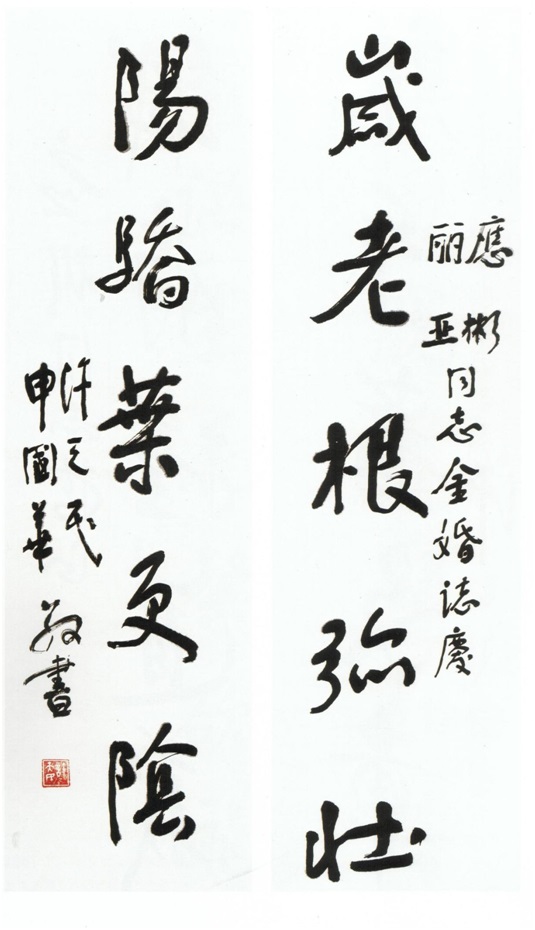 應彬
丽亚
同志金婚誌慶
歲老根弥壮
陽驕葉更陰
许 民
申國華
敬書